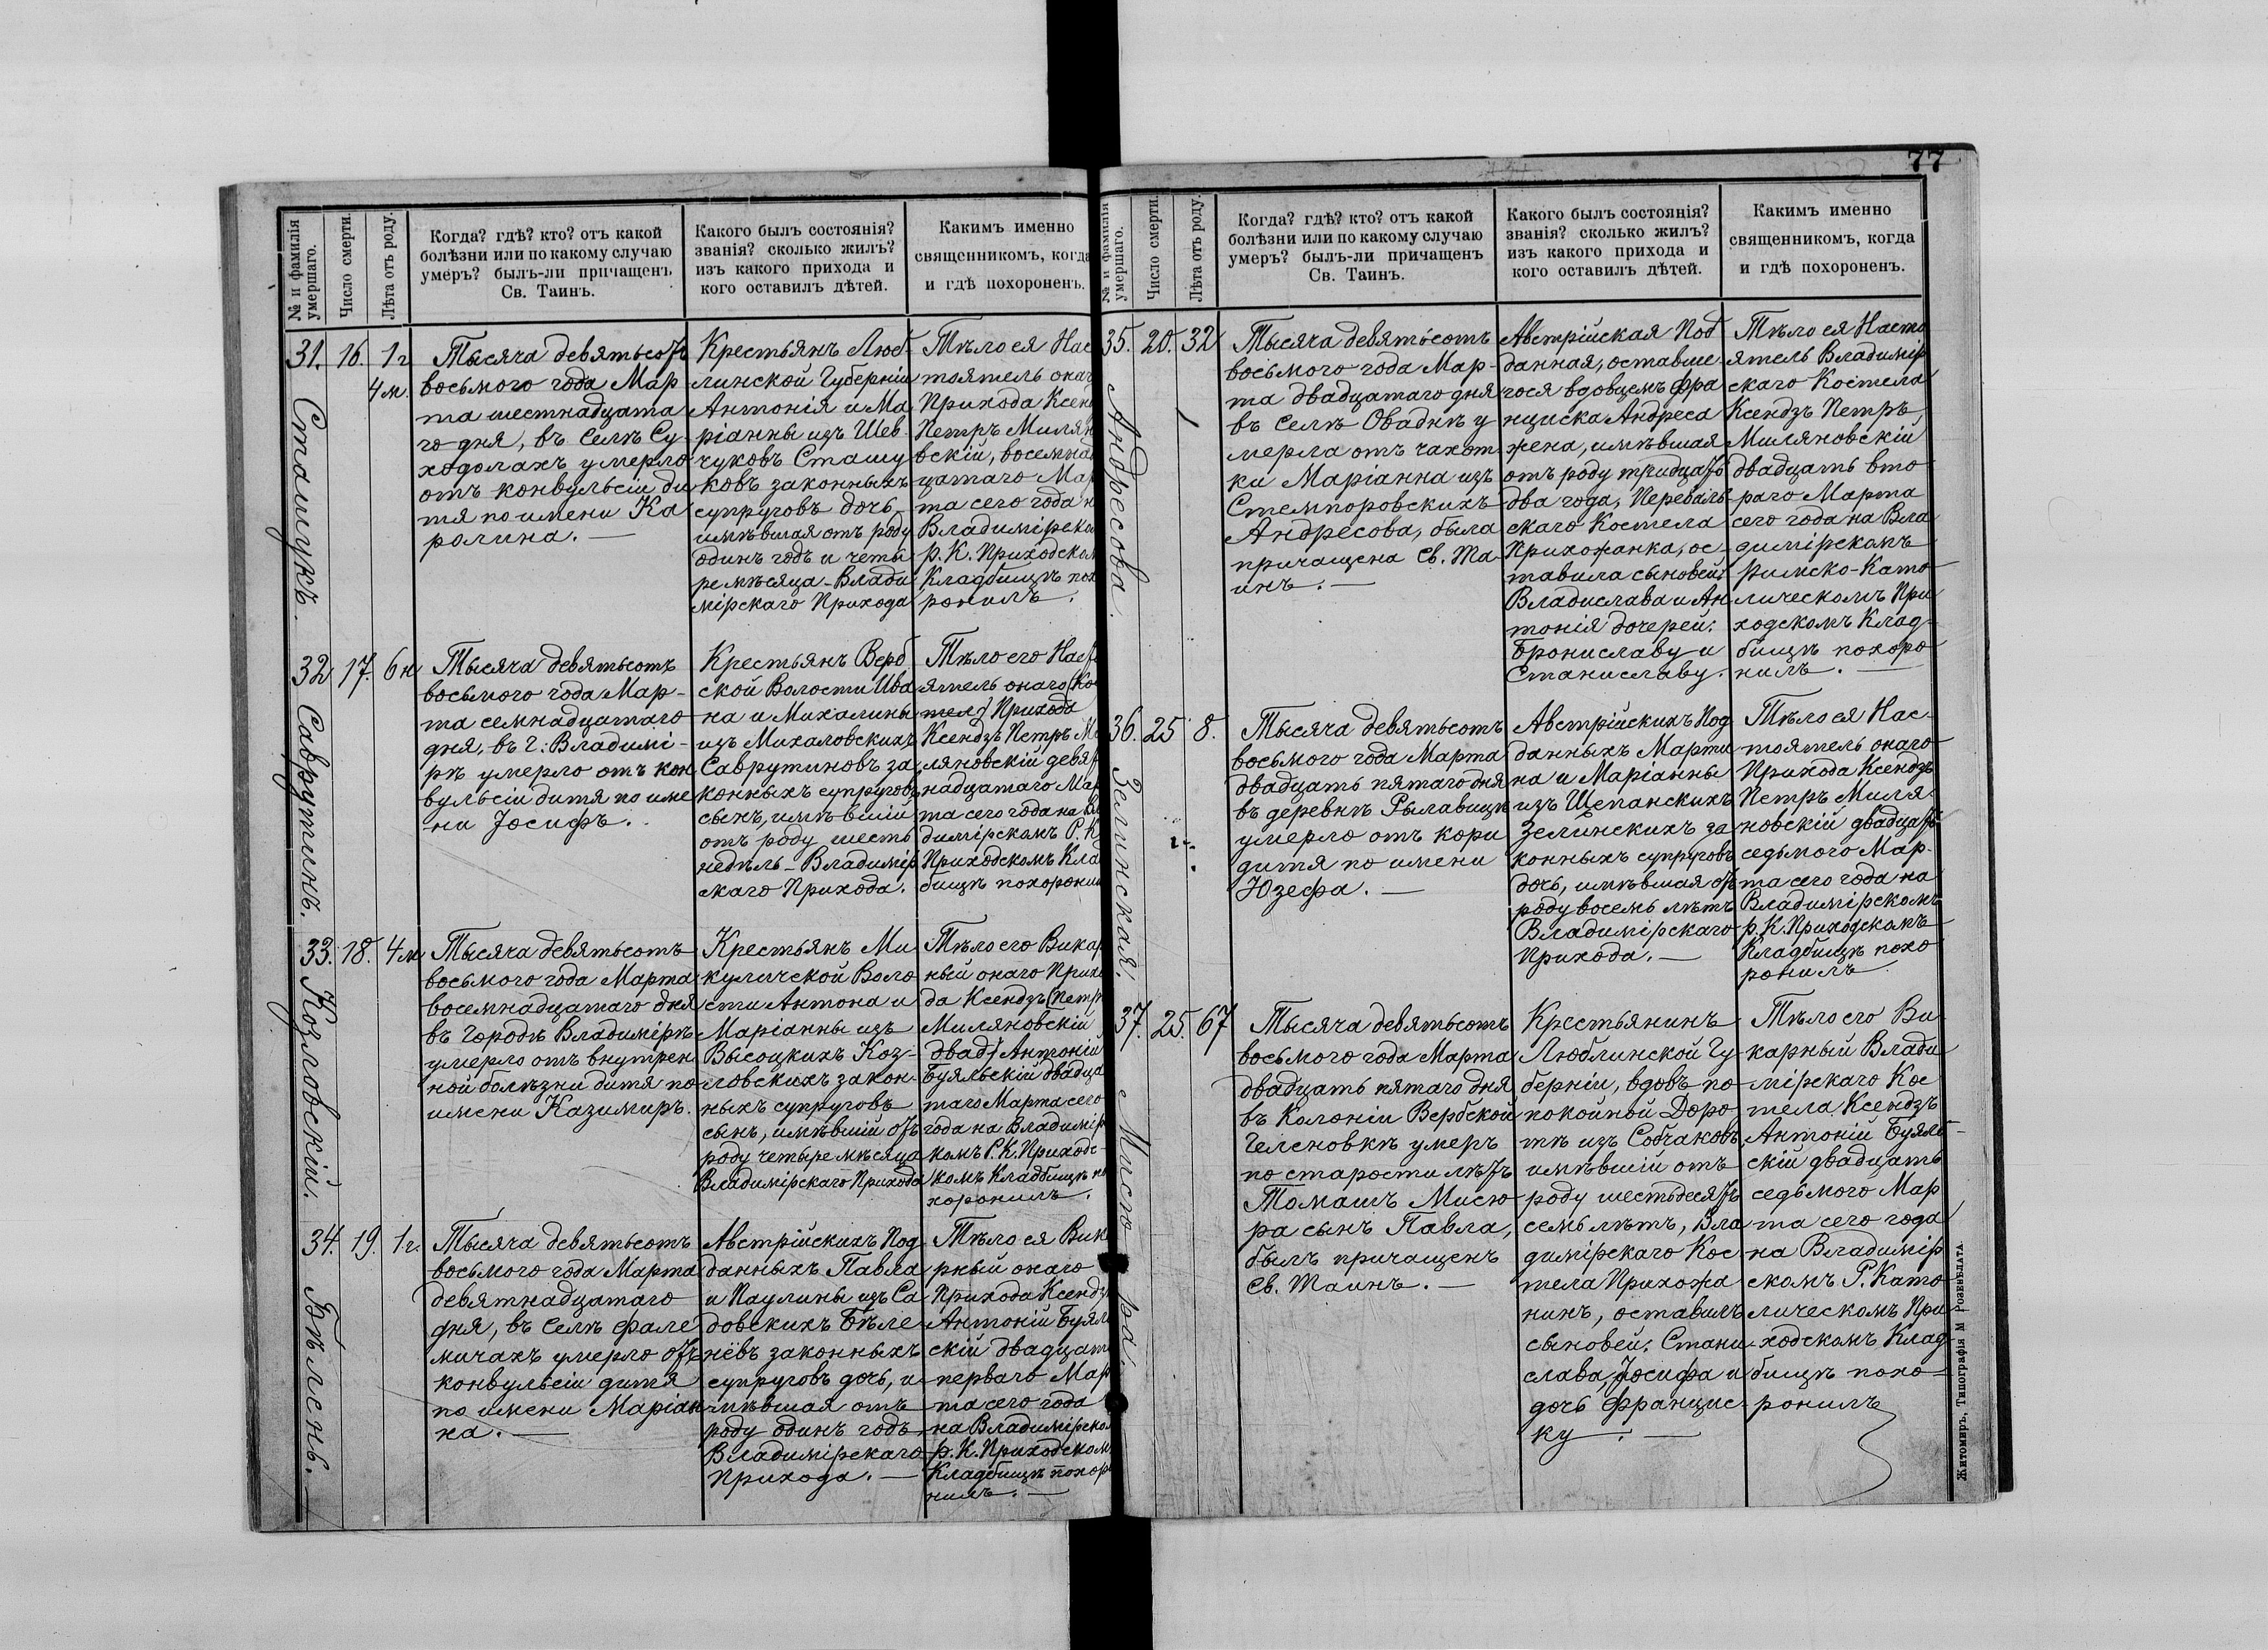 77
№ и фамилія
умершаго.
Число смерти.
Лѣта отъ роду.
Когда? гдѣ? кто? отъ какой
болѣзни или по какому случаю
умеръ? былъ-ли причащенъ
Св. Таинъ.
Какого былъ состоянія?
званія? сколько жилъ?
изъ какого прихода и
кого оставилъ дѣтей.
Какимъ именно
священникомъ, когда
и гдѣ похороненъ.
31. 16. 1 г
4 м.
Сташукъ.
Тысяча девятьсотъ
восьмого года Мар
та шестнадцата
го дня, въ селѣ Су
ходолахъ умерло
отъ конвульсіи ди
тя по имени Ка
ролина. —
Крестьянъ Люб
линской Губерніи
Антонія и Ма
ріанны изъ Шев
чуковъ Сташу
ковъ законныхъ
супруговъ дочь,
имѣвшая отъ роду
одинъ годъ и четы
ре мѣсяца - Влади
мірскаго Прихода
Тѣло ея Нас
тоятель онаг
Прихода Ксен
Петръ Милян
вскій, восемнад
цатаго Мар
та сего года н
Владимірско
р. К. Приходском
Кладбищѣ пох
ронилъ.
32 17. 6 н
Саврутинъ.
Тысяча девятьсотъ
восьмого года Мар-
та семнадцатаго
дня, въ г. Владимі-
рѣ умерло отъ кон
вульсіи дитя по име
ни Іосифъ.
Крестьянъ Верб
ской Волости Ива
на и Михалины
изъ Михаловскихъ
Саврутиновъ за
конныхъ супруговъ
сынъ, имѣвшій
отъ роду шесть
недѣль - Владимір
скаго Прихода.
Тѣло его Наст
ятель онаго (Кос
тел) Прихода
Ксендзъ Петръ Ми
ляновскій девят
надцатаго Мар
та сего года на Вл
димірскомъ Р. К
Приходскомъ Клад
бищѣ похоронил
33. 18. 4 м
Козловскій.
Тысяча девятьсотъ
восьмого года Марта
восемнадцатаго дня
въ городѣ Владимірѣ
умерло отъ внутрен
ной болѣзни дитя по
имени Казимиръ.
Крестьянъ Ми
куличской Воло
сти Антона и
Маріанны изъ
Высоцкихъ Коз-
ловскихъ закон-
ныхъ супруговъ
сынъ, имѣвшій отъ
роду четыре мѣсяца
Владимірскаго Прихода
Тѣло его Викар
ный онаго Прихо
да Ксендзъ (Петр
Миляновскій
двад) Антоній
Буяльскій двадца
таго Марта сего
года на Владимір
комъ Р. К. Приходс
комъ Кладбищѣ по
хоронилъ.
34. 19. 1 г.
Бѣлень.
Тысяча девятьсотъ
восьмого года Марта
девятнадцатаго
дня, въ селѣ Фале
мичахъ умерло отъ
конвульсіи дитя
по имени Маріан
на. —
Австрійскихъ Под
данныхъ Павла
и Паулины изъ Са
довскихъ Бѣле
нёвъ законныхъ
супруговъ дочь, и-
мѣвшая отъ
роду одинъ годъ
Владимірскаго
Прихода. —
Тѣло ея Вик
рный онаго
Прихода Ксендз
Антоній Буял
скій двадцат
перваго Мар
та сего года
на Владимірско
р. К. Приходском
Кладбищѣ похор
нилъ. —
№ и фамилія
умершаго.
Число смерти.
Лѣта отъ роду.
Когда? гдѣ? кто? отъ какой
болѣзни или по какому случаю
умеръ? былъ-ли причащенъ
Св. Таинъ.
Какого былъ состоянія?
званія? сколько жилъ?
изъ какого прихода и
кого оставилъ дѣтей.
Какимъ именно
священникомъ, когда
и гдѣ похороненъ.
35. 20. 32
Андресова.
Тысяча девятьсотъ
восьмого года Мар-
та двадцатаго дня
въ селѣ Овадѣ у
мерла отъ чахот
ки Маріанна изъ
Стемпоровскихъ
Андресова, была
причащена Св. Та-
инъ. —
Австрійская Под
данная, оставше
гося вдовцемъ Фра
нциска Андреса
жена, имѣвшая
отъ роду тридцать
два года, Переваль
скаго Костела
Прихожанка, ос-
тавила сыновей:
Владислава и Ан
тонія дочерей:
Брониславу и
Станиславу.
Тѣло ея Насто
ятель Владимір
скаго Костела
Ксендзъ Петръ
Миляновскій
двадцать вто
раго Марта
сего года на Вла
димірскомъ
Римско-Като
лическомъ При
ходскомъ Клад-
бищѣ похоро
нилъ. —
36. 25 8.
Зелинская.
Тысяча девятьсотъ
восьмого года Марта
двадцать пятаго дня
въ деревнѣ Рылавицѣ
умерло отъ кори
дитя по имени
Юзефа. —
Австрійскихъ Под
данныхъ Марти
на и Маріанны
изъ Щепанскихъ
Зелинскихъ за
конныхъ супруговъ
дочь, имѣвшая отъ
роду восемь лѣтъ
Владимірскаго
Прихода. —
Тѣло ея Нас-
тоятель онаго
Прихода Ксендзъ
Петръ Миля-
новскій двадцать
седьмого Мар-
та сего года на
Владимірскомъ
р. К. Приходскомъ
Кладбищѣ похо
ронилъ
37. 25. 67
Мисюра.
Тысяча девятьсотъ
восьмого года Марта
двадцать пятаго дня
въ Колоніи Вербской
Геленовкѣ умеръ
по старости лѣтъ
Томашъ Мисю
ра сынъ Павла,
былъ причащенъ
Св. Таинъ. —
Крестьянинъ
Люблинской Гу
берніи, вдовъ по-
покойной Доро
тѣ изъ Собчаковъ
имѣвшій отъ
роду шестьдесятъ
семь лѣтъ, Вла
димірскаго Кос
тела Прихожа
нинъ, оставилъ
сыновей: Стани
слава, Іосифа и
дочь Францис-
ку. —
Тѣло его Ви
карный Влади
мірскаго Кос
тела Ксендзъ
Антоній Буяль-
скій двадцать
седьмого Мар
та сего года
на Владимір
скомъ Р. Като
лическомъ При
ходскомъ Клад-
бищѣ похо-
ронилъ
Житомиръ, Типографія М Розенблата.